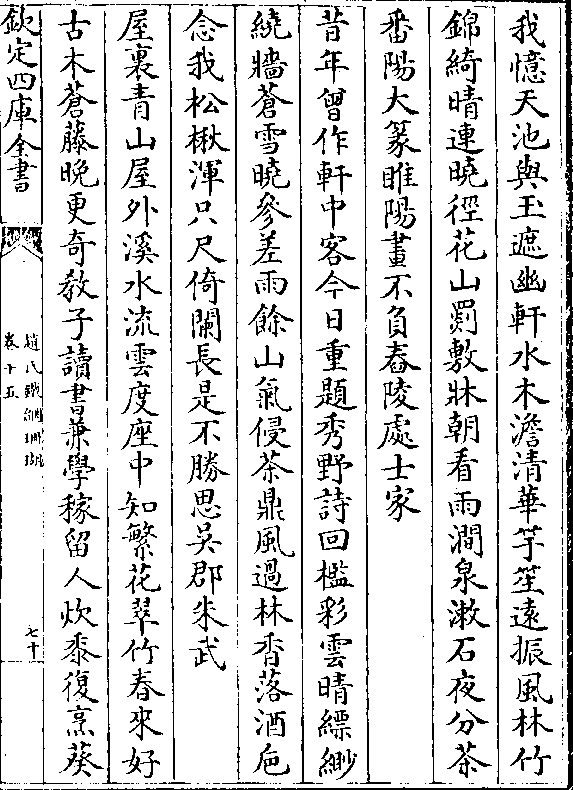 我憶天池與玉遮幽軒水木澹清華竽笙遠振風林竹
錦綺晴連曉徑花山罽敷牀朝看雨澗泉漱石夜分茶
番陽大篆睢陽畫不負舂陵處士家
昔年曾作軒中客今日重題秀野詩回檻彩雲晴縹緲
繞牆蒼雪曉參差雨餘山氣侵茶鼎風過林香落酒巵
念我松楸渾只尺倚闌長是不勝思吳郡朱武
屋裏青山屋外溪水流雲度座中知繁花翠竹春來好
古木蒼藤晚更奇教子讀書兼學稼留人炊黍復烹葵
欽定四庫全書
趙氏鐵網珊瑚
卷十五
七十